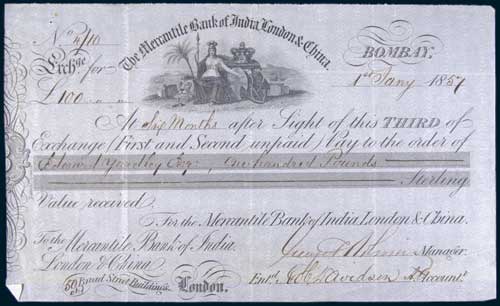 No 4/110
The Mercantile Bank of India, London & China.
Exchge for
BOMBAY.
£100
1st Jany 1857
At Six Months after Sight of this THIRD of
Exchange (First and Second unpaid) Pay to the order of
Edward Yardley Esqr One hundred Pounds
Sterling
Value received.
For the Mercantile Bank of India, London & China.
To the Mercantile Bank of India.
Manager.
London & China
Entd. Davidson Accountt.
50 Broad Street Buildings. London.